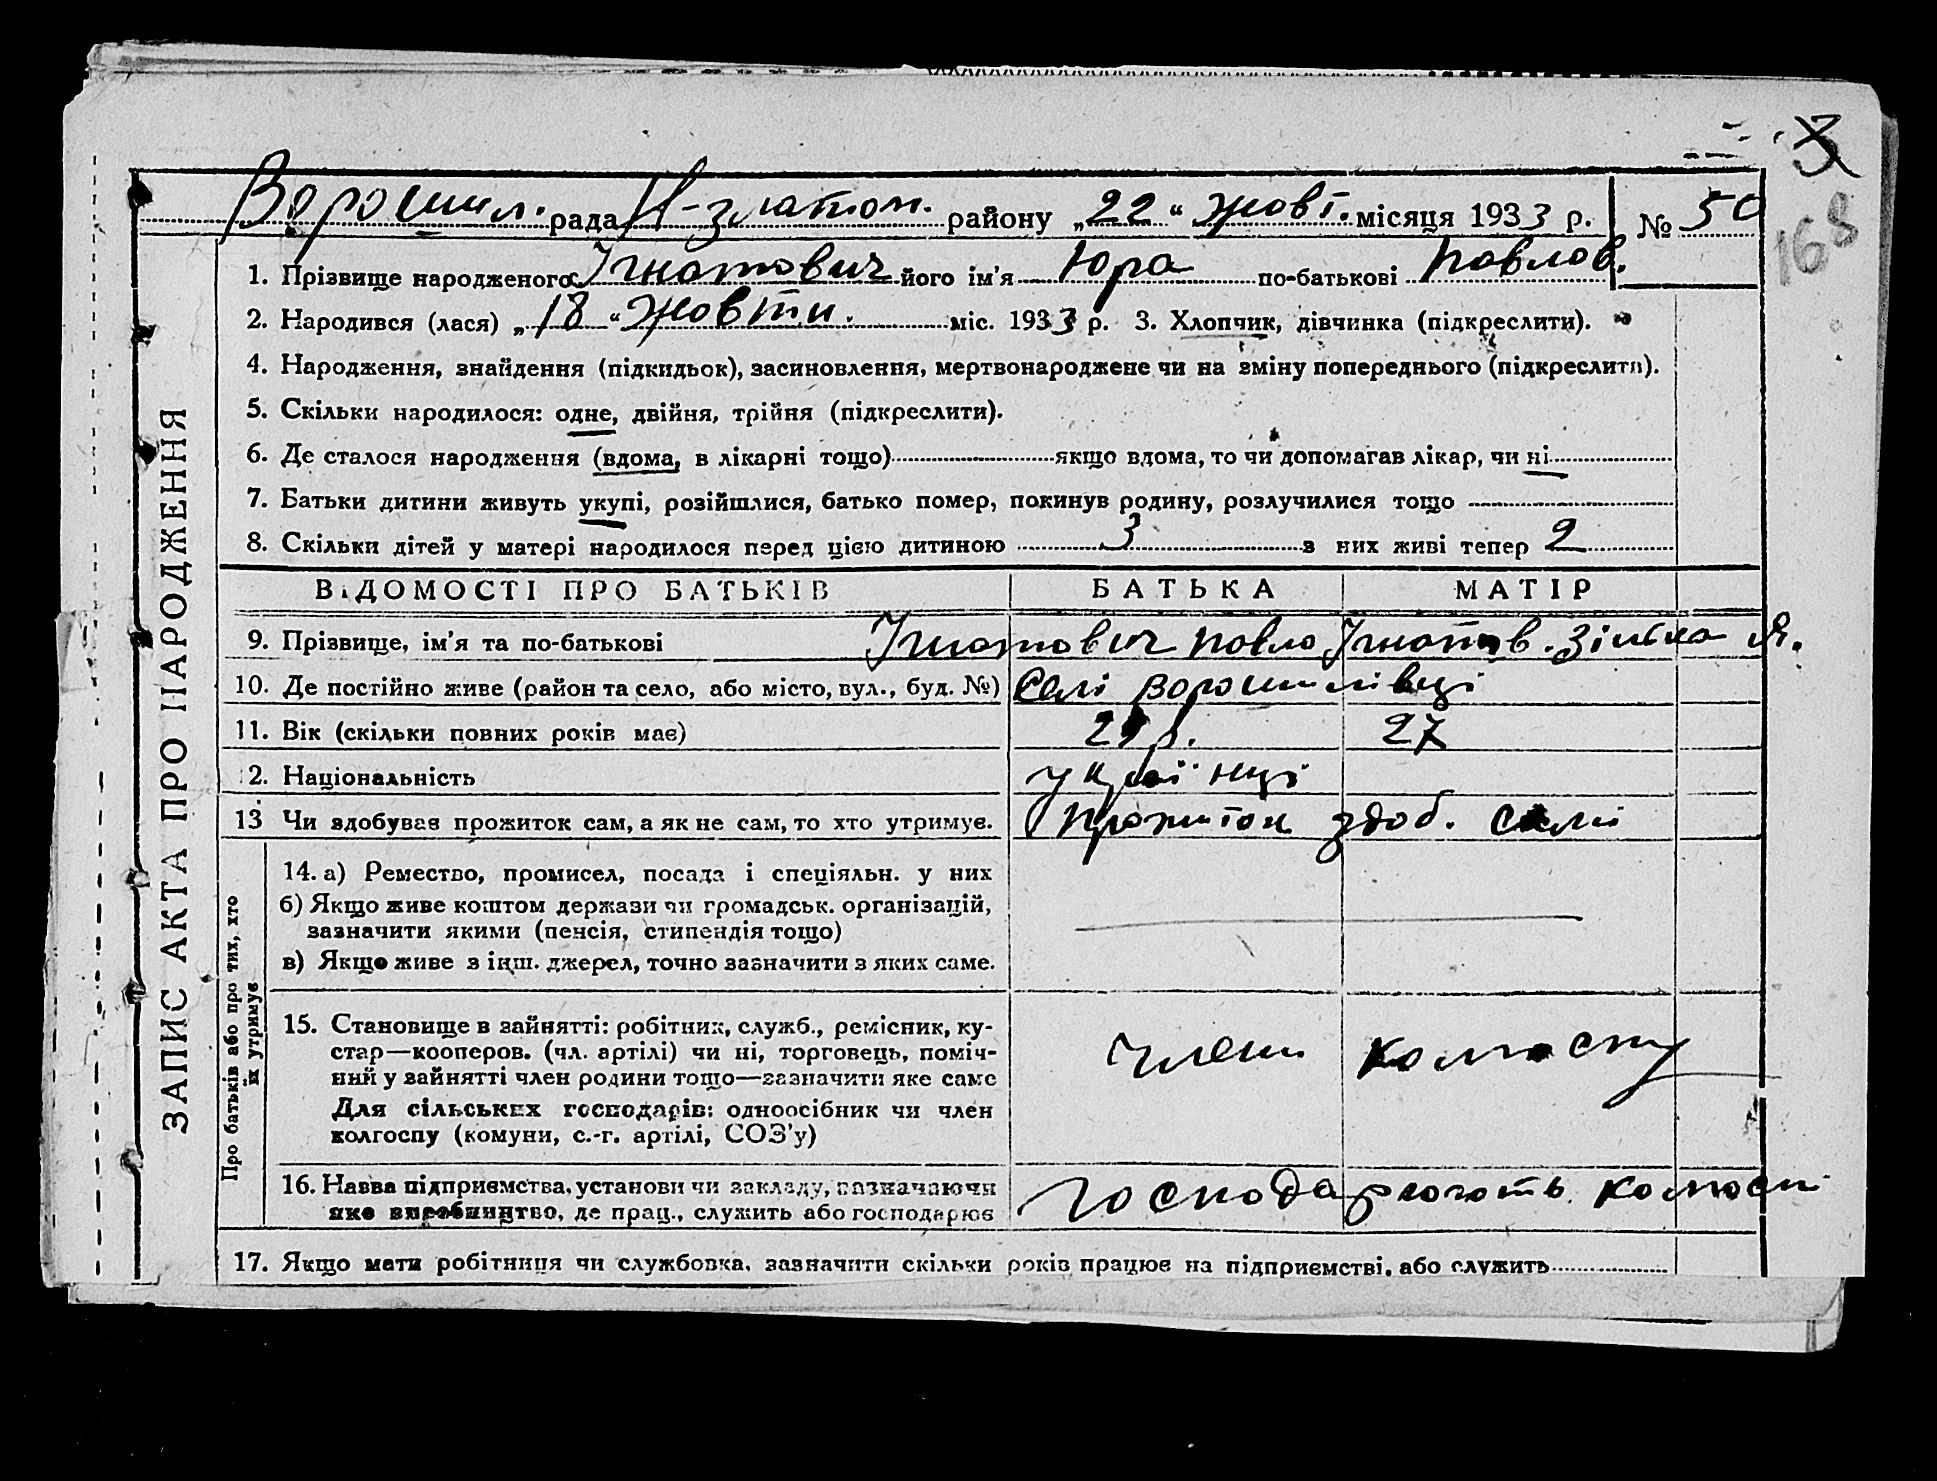 З
168
Ворошил. рада Н-златоп. району „22“ жовт. місяця 1933 р. № 50
1. Прізвище народженого Ігнатович його ім'я Юра по-батькові Павлов.
2. Народився (лася) „18“ Жовтн. міс. 1933 р. 3. Хлопчик, дівчинка (підкреслити).
4. Народження, знайдення (підкидьок), засиновлення, мертвонароджене чи на зміну попереднього (підкреслити).
5. Скільки народилося: одне, двійня, трійня (підкреслити).
6. Де сталося народження (вдома, в лікарні тощо) якщо вдома, то чи допомагав лікар, чи ні
7. Батьки дитини живуть укупі, розійшлися, батько помер, покинув родину, розлучилися тощо
8. Скільки дітей у матері народилося перед цією дитиною 3 з них живі тепер 2
ВІДОМОСТІ ПРО БАТЬКІВ БАТЬКА МАТІР
9. Прізвище, ім'я та по-батькові Ігнатович Павло Ігнатов. Я.
10. Де постійно живе (район та село, або місто, вул., буд. №) Селі Ворошилівці
11. Вік (скільки повних років має) р. 27
12. Національність українці
13 Чи здобував прожиток сам, а як не сам, то хто утримує. Прожиток здоб. самі
14. а) Ремество, промисел, посада і спеціяльн. у них
б) Якщо живе коштом держави чи громадськ. організацій,
зазначити якими (пенсія, стипендія тощо)
в) Якщо живе з інш. джерел, точно зазначити з яких саме.
15. Становище в зайнятті: робітник, служб., ремісник, ку-
стар—кооперов. (чл. артілі) чи ні, торговець, поміч-
ний у зайнятті член родини тощо—зазначити яке саме
Для сільських господарів: одноосібник чи член
колгоспу (комуни, с.-г. артілі, СОЗ'у)
члени колгоспу
16. Назва підприємства, установи чи закладу, зазначаючи
яке виробництво, де прац., служить або господарює
господарюють колгоспі
17. Якщо мати робітниця чи службовка, зазначити скільки років працює на підприємстві, або служить
ЗАПИС АКТА ПРО НАРОДЖЕННЯ
Про батьків або про тих, хто
їх утримує